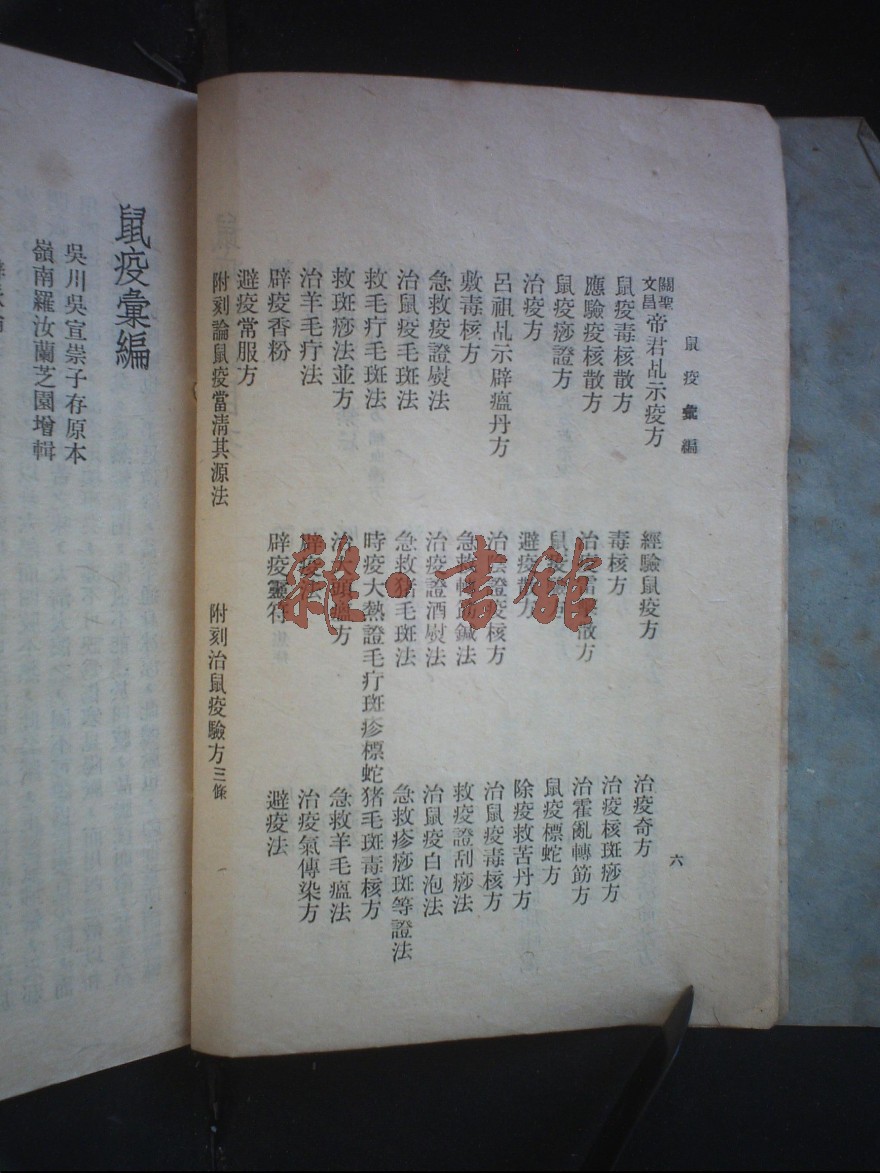 鼠疫彙編 六
關聖文昌帝君乩示疫方 經驗鼠疫方 治疫奇方
鼠疫毒核散方 毒核方 治疫核斑痧方
應驗疫核散方 治疫散方 治霍亂轉筋方
鼠疫痧證方 鼠疫 鼠疫標蛇方
治疫方 避疫散方 除疫救苦丹方
呂祖乩示辟瘟丹方 治陰證疫核方 治鼠疫毒核方
敷毒核方 急救轉筋鍼法 救疫證刮痧法
急救疫證熨法 治疫證酒熨法 治鼠疫白泡法
治鼠疫毛斑法 急救猪毛斑法 急救疹痧斑等證法
救毛疔毛斑法 時疫大熱證毛疔斑疹標蛇猪毛斑毒核方
救斑痧法並方 治大頭瘟方 急救羊毛瘟法
治羊毛疔法 辟疫法 治疫氣傳染方
辟疫香粉 辟疫靈符 避疫法
避疫常服方
附刻論鼠疫當清其源法 附刻治鼠疫驗方三條
鼠疫彙編
吳川吳宣崇子存原本
嶺南羅汝蘭芝園增輯
雜·書館